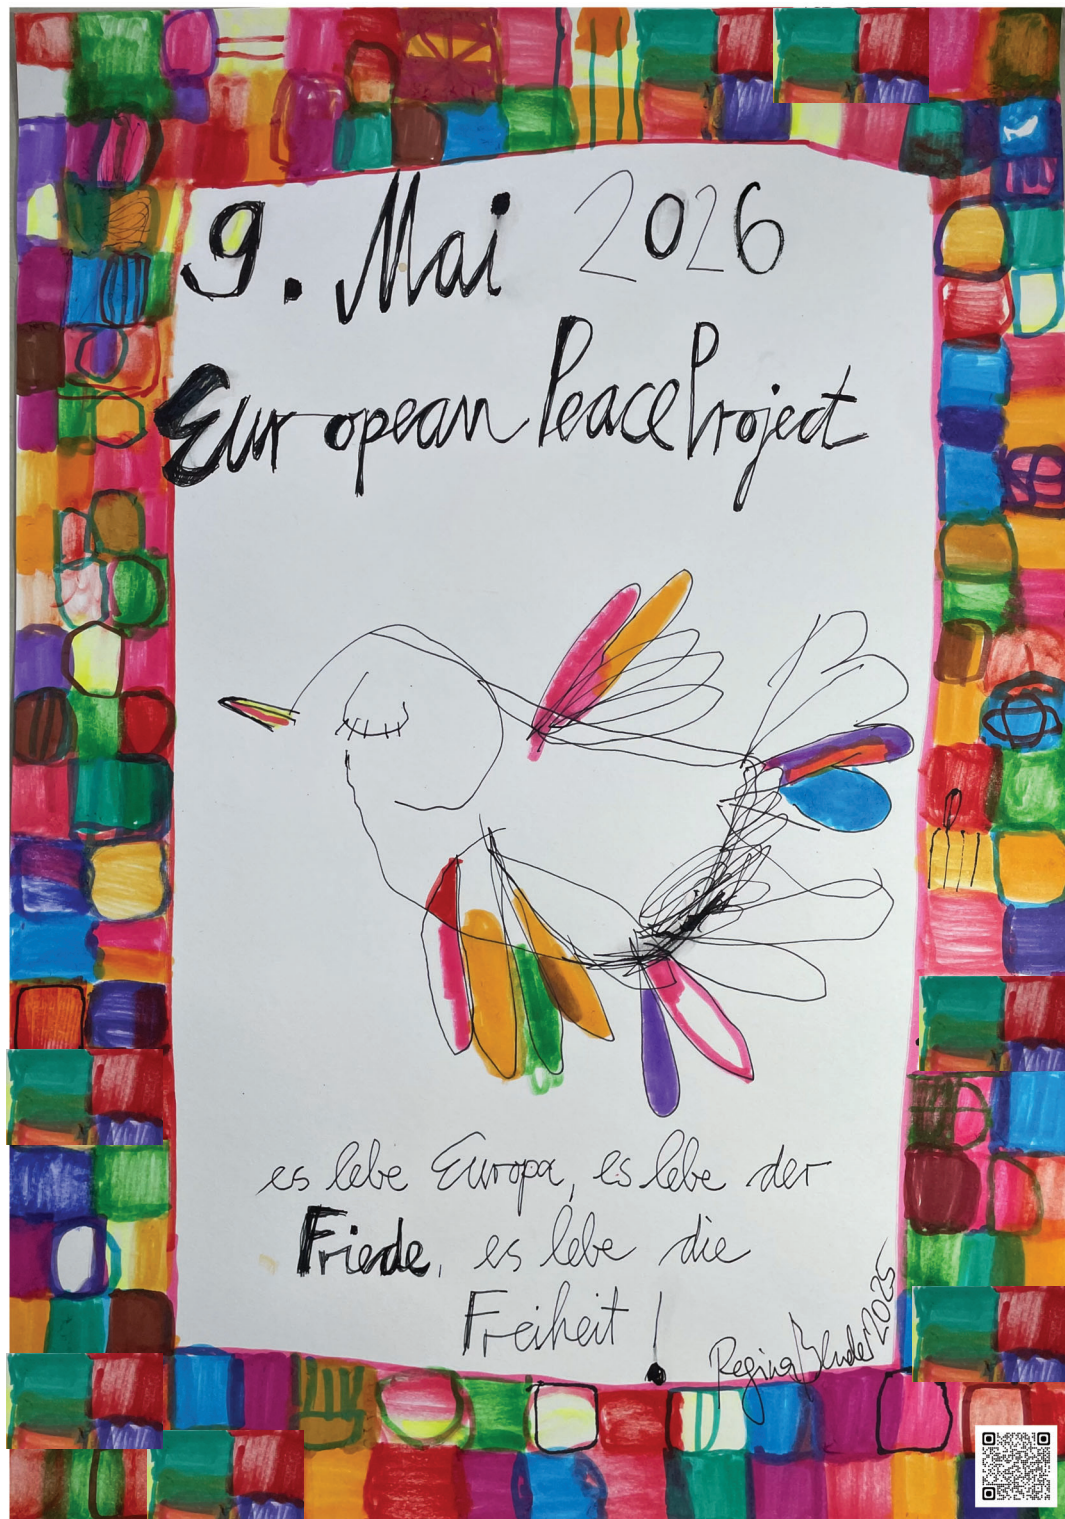 9. Mai 2026
European Peace Project
es lebe Europa, es lebe der
Friede, es lebe die
Freiheit!
Regina Bender 2025